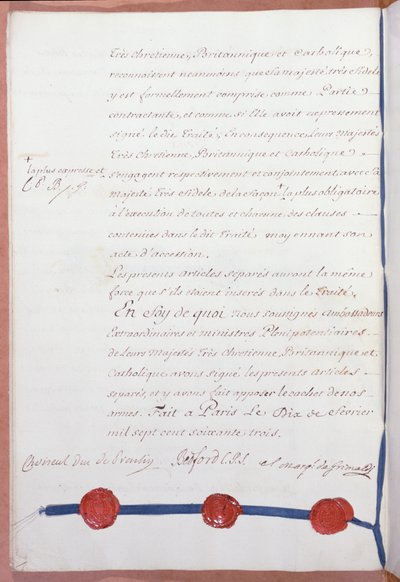 Très Chretienne, Britannique et Catholique,
reconnoissent neanmoins que sa majesté très Fidele
y est formellement comprise comme Partie
contractante, et comme si Elle avoit expressement
signé le dit Traité; En consequence Leurs Majestés
Très Chretienne, Britannique et Catholique
s'engagent respectivement et conjointement avec Sa
Majesté Très Fidele de la façon + la plus obligatoire
à l'execution de toutes et chacune des clauses
contenües dans le dit Traité, moyennant son
acte d'accession.
+ la plus expresse et
Les presents articles separés auront la même
force que s'ils étoient inserés dans le Traité.
En Foy de quoi nous soussignés Ambassadeurs
Extraordinaires et ministres Plenipotentiaires
de Leurs Majestés Très Chretienne, Britannique et
Catholique avons signé les presents articles
separés, et y avons fait apposer le cachet de nos
armes. Fait a Paris Le Dix de Février
mil sept cent soixante trois.
Choiseul Duc de Praslin Bedford C.P.S. el marq.s de Grimaldi